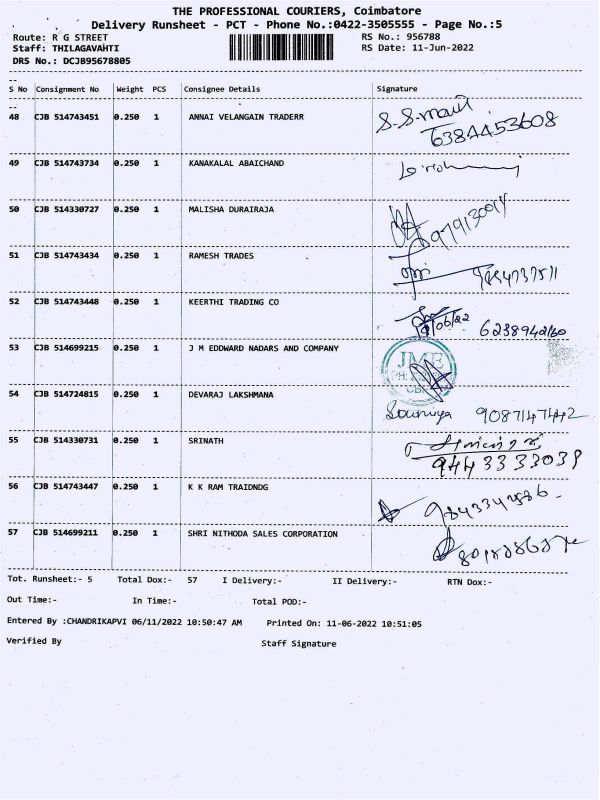 THE PROFESSIONAL COURIERS, Coimbatore
Delivery Runsheet - PCT - Phone No.:0422-3505555 - Page No.:5
Route: R G STREET RS No.: 956788
Staff: THILAGAVAHTI RS Date: 11-Jun-2022
DRS No.: DCJB95678805
S No Consignment No Weight PCS Consignee Details Signature
48 CJB 514743451 0.250 1 ANNAI VELANGAIN TRADERR S.S.mani
6384453608
49 CJB 514743734 0.250 1 KANAKALAL ABAICHAND
50 CJB 514330727 0.250 1 MALISHA DURAIRAJA
51 CJB 514743434 0.250 1 RAMESH TRADES
52 CJB 514743448 0.250 1 KEERTHI TRADING CO 6238942160
53 CJB 514699215 0.250 1 J M EDDWARD NADARS AND COMPANY JME
54 CJB 514724815 0.250 1 DEVARAJ LAKSHMANA Soumiya 9087147442
55 CJB 514330731 0.250 1 SRINATH
9443333039
56 CJB 514743447 0.250 1 K K RAM TRAIDNDG
57 CJB 514699211 0.250 1 SHRI NITHODA SALES CORPORATION
Tot. Runsheet:- 5 Total Dox:- 57 I Delivery:- II Delivery:- RTN Dox:-
Out Time:- In Time:- Total POD:-
Entered By :CHANDRIKAPVI 06/11/2022 10:50:47 AM Printed On: 11-06-2022 10:51:05
Verified By Staff Signature